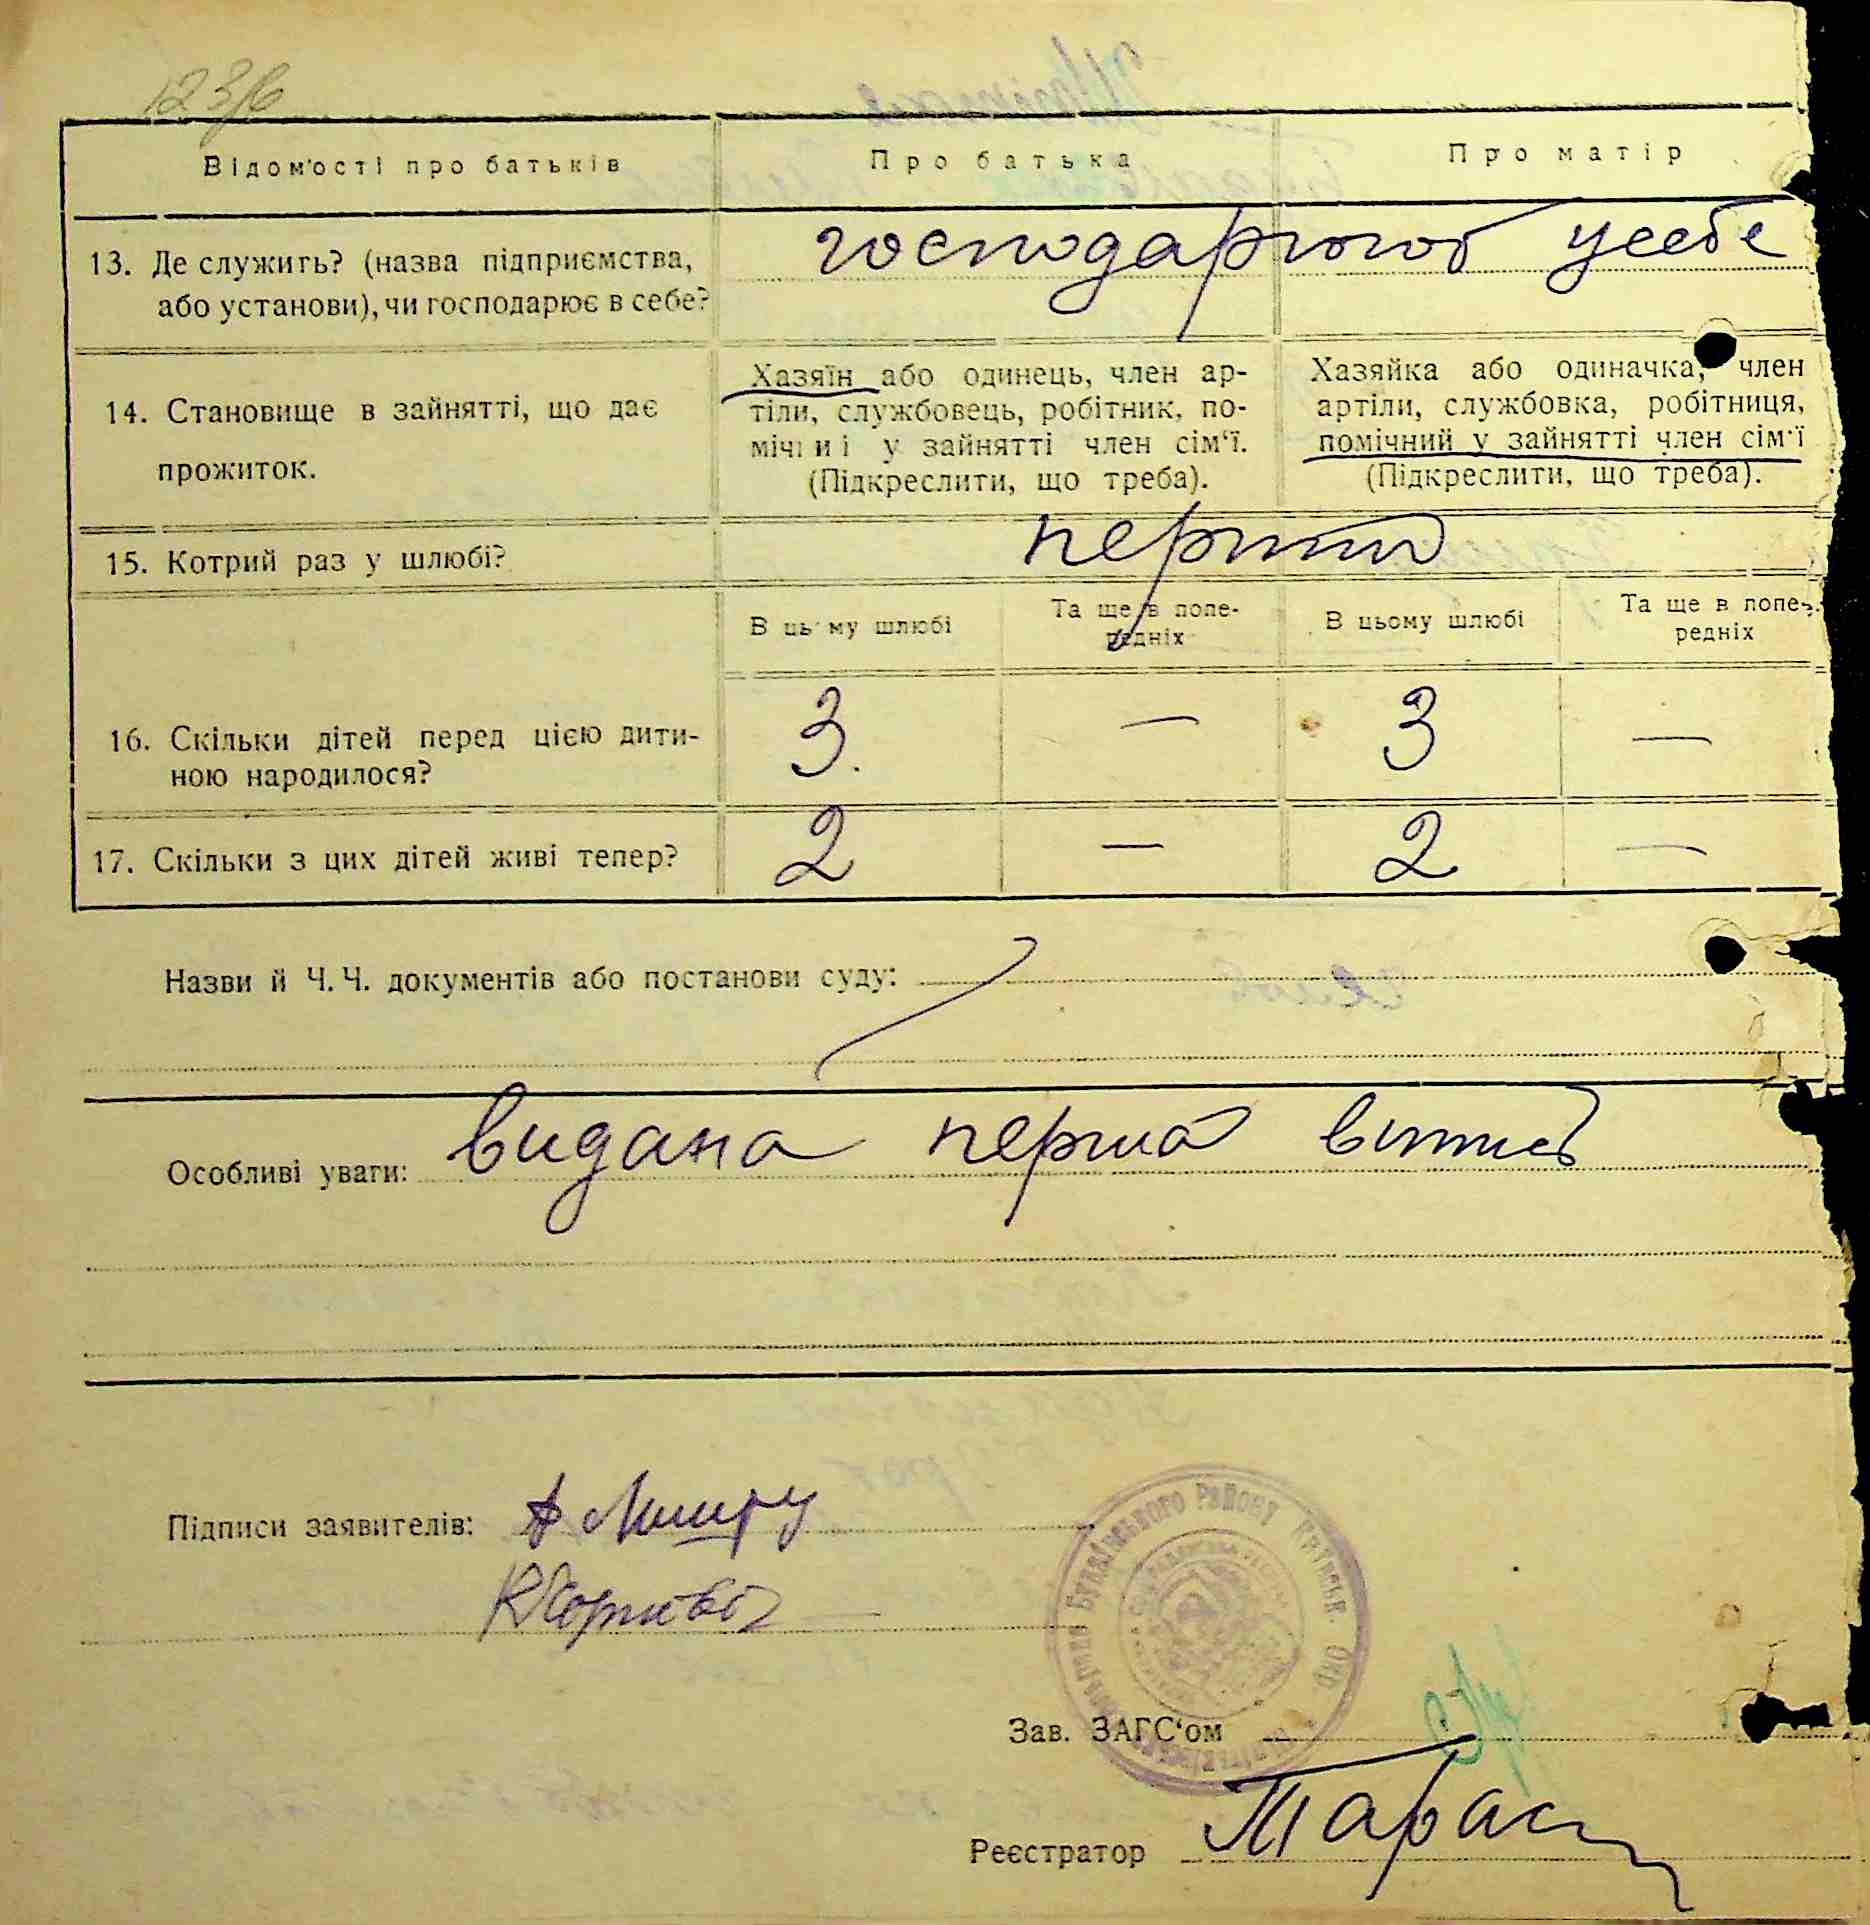 123/6
Відомості про батьків
Про батька
Про матір
13. Де служить? (назва підприємства, або установи), чи господарює в себе?
господарюют усебе
14. Становище в зайнятті, що дає прожиток.
Хазяїн або одинець, член ар-
тіли, службовець, робітник, по-
мічний у зайнятті член сім'ї.
(Підкреслити, що треба).
Хазяйка або одиначка, член
артіли, службовка, робітниця,
помічний у зайнятті член сім'ї
(Підкреслити, що треба).
15. Котрий раз у шлюбі?
В цьому шлюбі
Та ще в попе-
редніх
В цьому шлюбі
Та ще в попе-
редніх
16. Скільки дітей перед цією дити-
ною народилося?
3. — 3 —
17. Скільки з цих дітей живі тепер?
2 — 2 —
Назви й Ч. Ч. документів або постанови суду:
Особливі уваги: видана перша випись
Підписи заявителів:
Букківського Району
Окр.
Зав. ЗАГС'ом
Реєстратор Тарас